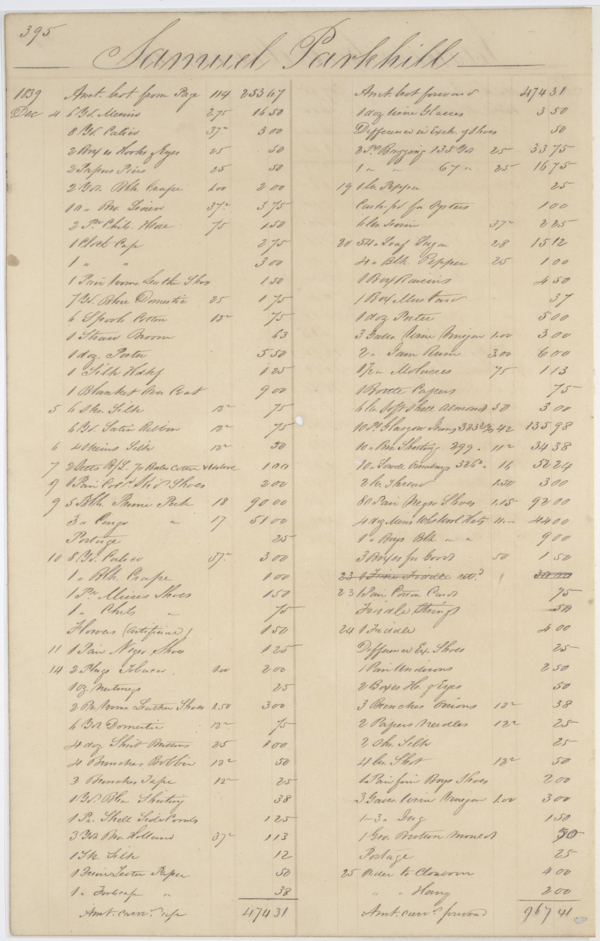 395
Samuel Parkhill
1839 Amt. bot from Page 114 253 67
Dec 4 6 Yd. Merino 275 16 50
8 Yd. Calico 37 3 00
2 Box es Hooks & Eyes 25 50
2 Papers Pins 25 50
2 Yds. Blk Crape 100 2 00
10 " Bro Linen 37 3 75
2 Pr Chil. Hose 75 1 50
1 Cloth Cap 2 75
1 " " 3 00
1 Pair Leather Shoes 1 50
7 Yd. Blue Domestic 25 1 75
6 Spools Cotton 12 75
1 Straw Broom 63
1 doz. Porter 5 50
1 Silk Hdkf 1 25
1 Blanket Over Coat 9 00
5 6 Sks Silk 12 75
6 Yd. Satin Ribbon 12 75
6 4 Skeins Silk 12 50
7 Cotton 1 00
9 1 Pair Shoes 2 00
9 5 Bbls Prime Pork 18 90 00
3 " Cargo " 17 51 00
Postage 25
10 8 Yd. Calico 37 3 00
1 " Blk. Crape 1 00
1 Pr. Misses Shoes 1 50
1 " Chils " 75
Flowers (Artificial) 1 50
11 1 Pair Negro Shoes 1 25
14 2 Plugs Tobacco 100 2 00
1 oz Nutmegs 25
2 Pr Leather Shoes 150 3 00
6 Yds Domestic 12 75
4 doz Shirt Buttons 25 1 00
4 Bunches Bobbin 12 50
2 Bunches Tape 12 25
1 Yd. Blea Sheeting 38
1 Pr. Shell Side Combs 1 25
3 Yds Bro Holland 37 1 13
1 Sk Silk 12
1 Letter Paper 50
1 " Foolscap " 38
Amt. carr. up 474 31
Amt. bot forward 474 31
1 doz Wine Glasses 3 50
Difference in Exch. of Shoes 50
2 Ps. Bagging 135 Yds 25 33 75
1 " " 67 " 25 16 75
19 1 lb. Pepper 25
Cash pd for Oysters 1 00
6 37 2 25
20 54 " Loaf Sugar 28 15 12
4 " Blk. Pepper 25 1 00
1 Box Raisins 4 50
1 Box Mustard 37
1 doz Porter 5 00
3 Galls Vinegar 1.00 3 00
2 " Jam Rum 3.00 6 00
Molasses 75 1 13
1 Bottle Capers 75
6 lb. Soft Shell Almonds 50 3 00
10 Ps. Glasgow Jeans 42 135 98
10 " Bro Sheeting 299 " 11 34 38
10 " Lowell 16 52 24
2 lb. Thread 1.50 3 00
80 Pair Negro Shoes 1.15 92 00
4 doz Mens Wh Wool Hats 11.— 44 00
1 " Boys Blk " " 9 00
3 Boxes for Goods 50 1 50
23 1 Fiddle
23 1 Pair Cotton Cards 75
Fiddle Strings 50
24 1 Fiddle 4 00
Difference Ex. Shoes 25
1 Pair Andirons 2 50
2 Boxes Hk. & Eyes 50
3 Bunches Onions 12 38
2 Papers Needles 12 25
2 Sks Silk 25
4 lbs Shot 12 50
1 Pair fine Boys Shoes 2 00
3 Vinegar 1.00 3 00
1 – 3 " Jug 1 50
1 50
Postage 25
25 Order to 4 00
" " Haug 2 00
Amt. carr. forward 967 41